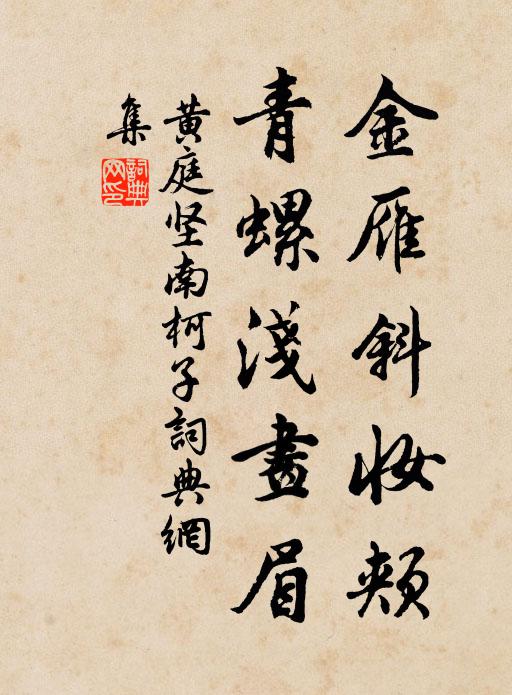 金雁斜妆颊
青螺淺畫眉
黄庭坚南柯子詞典網
集
詞典
网印